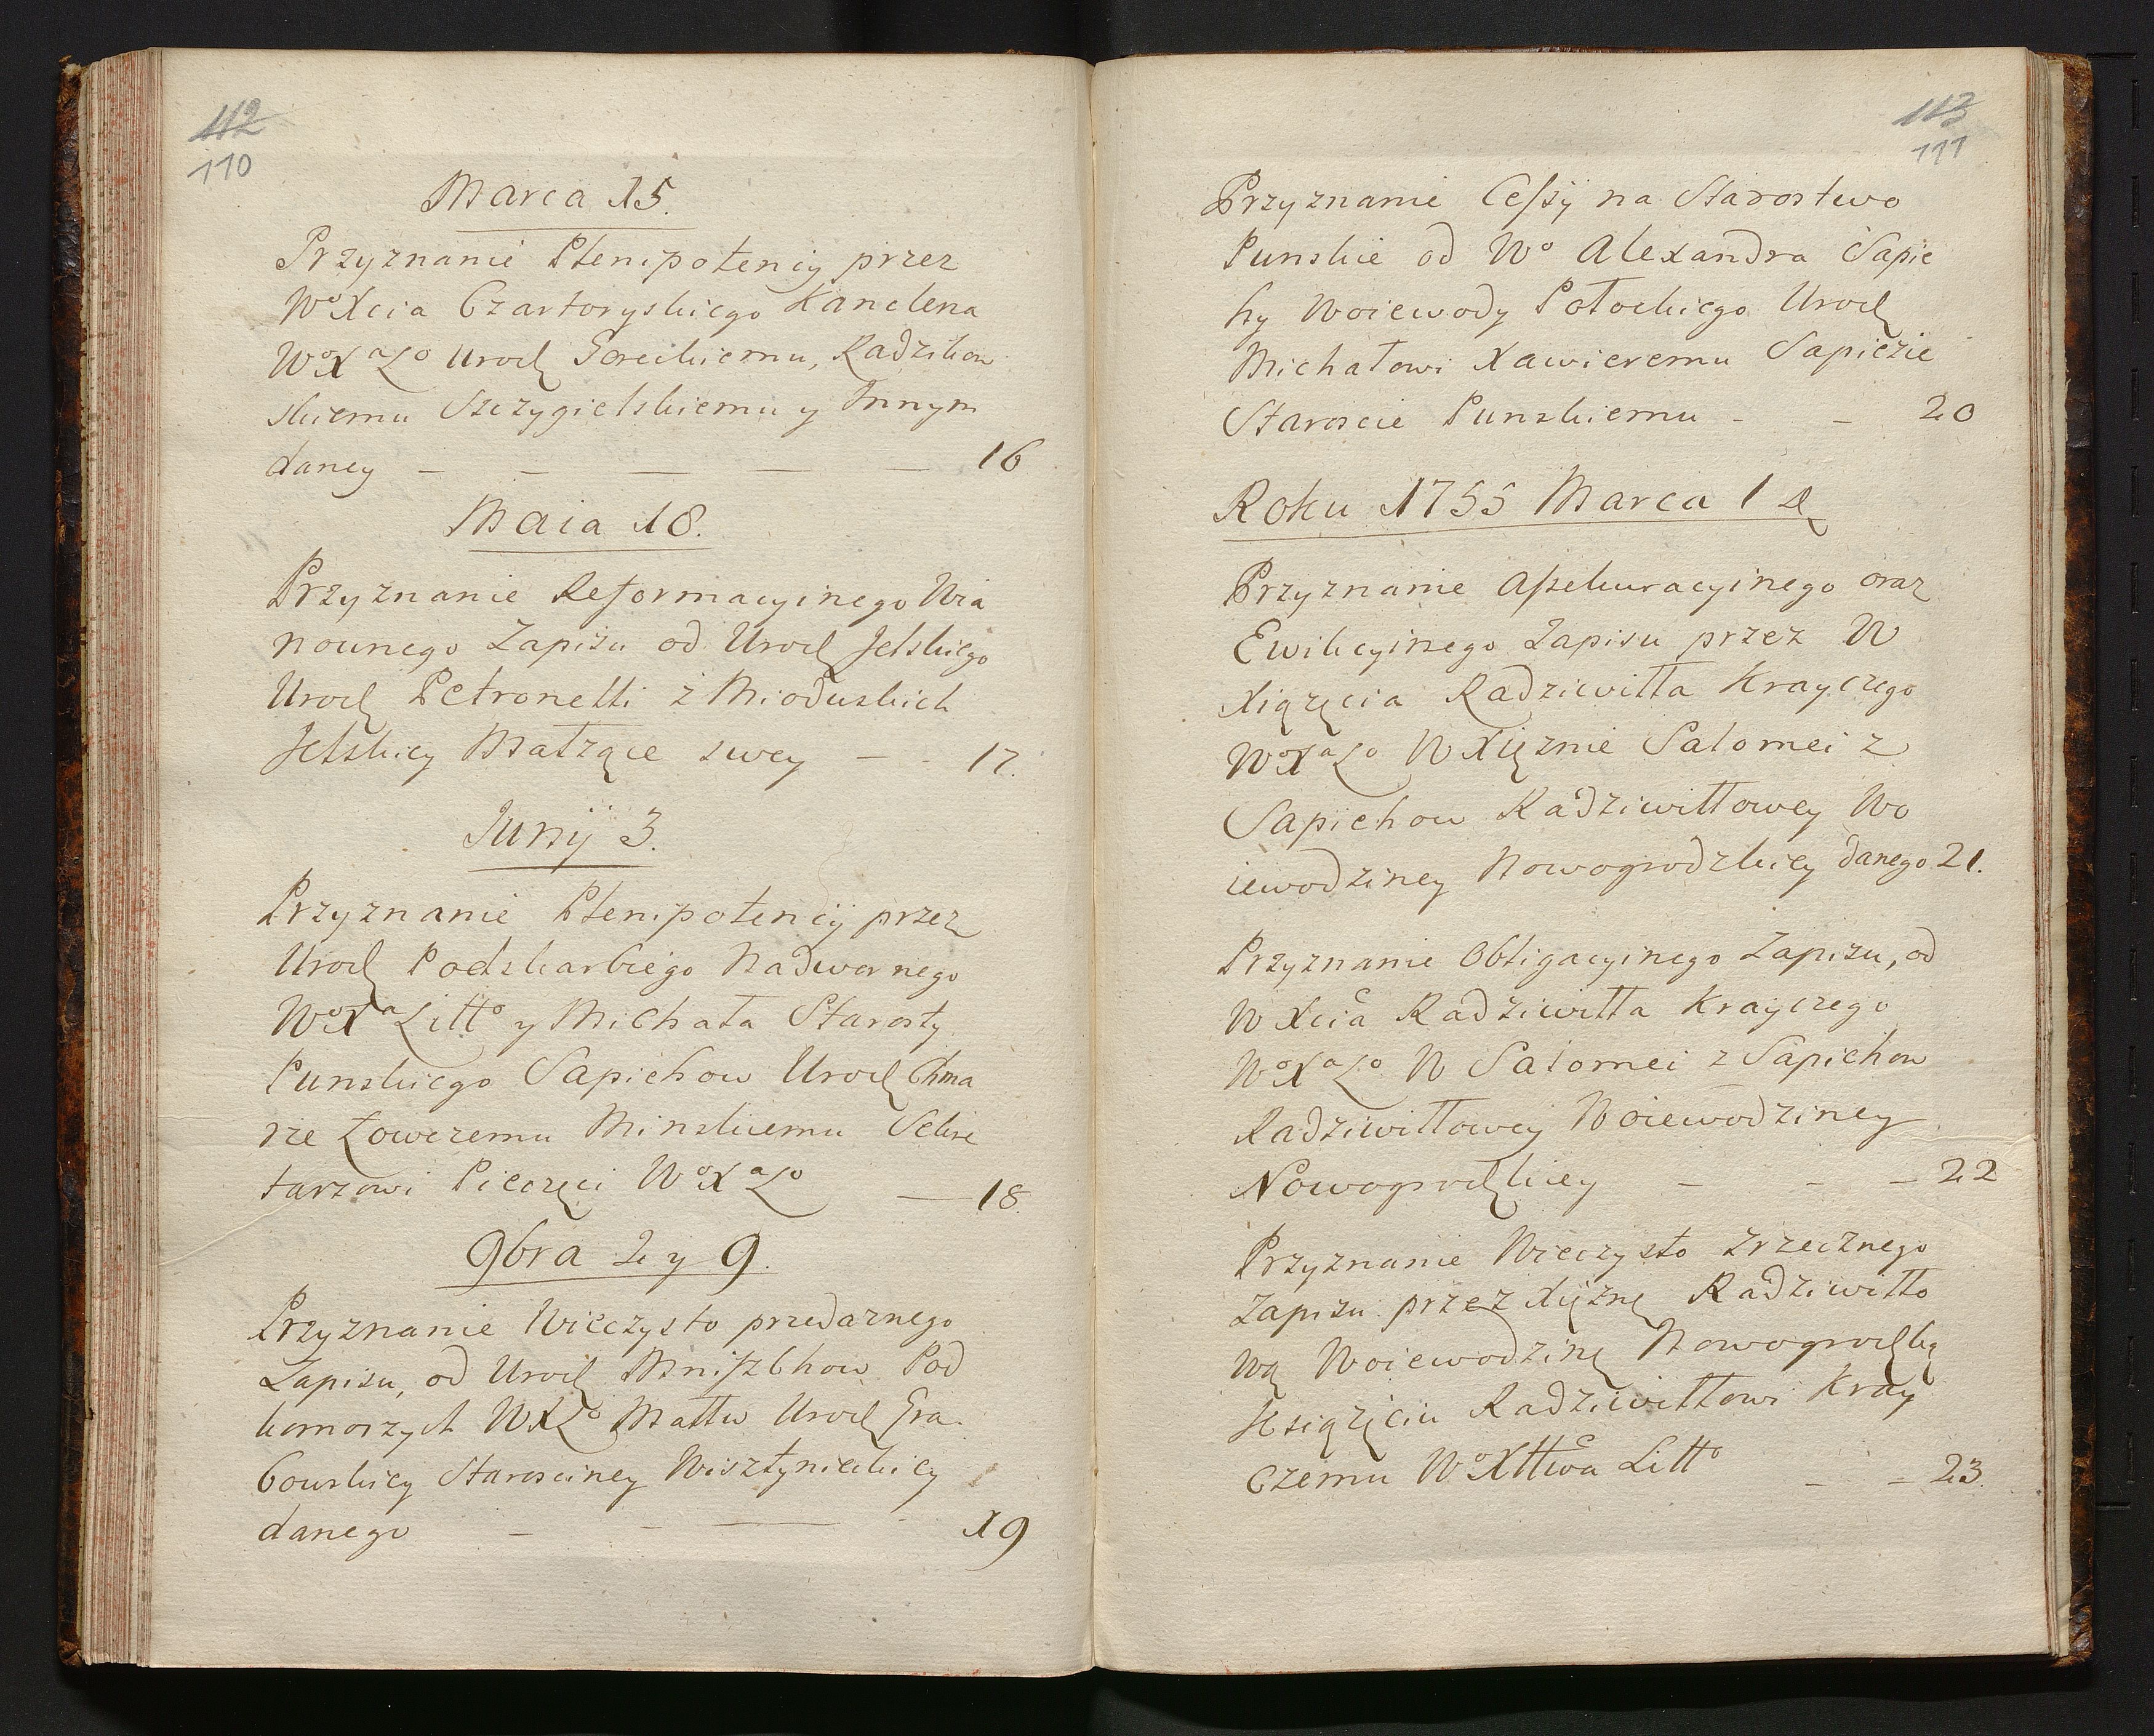 112
110
Marca 15.
Przyznanie Plenipotencij przez
Wo Xcia Czartoryskiego Kanclerza
Wo Xa Lo Urodz Goreckiemu, Radzikow
skiemu Szczygielskiemu y Innym
daney — — — — — 16
Maia 18.
Przyznanie Reformacyinego Wia
nownego Zapisu od Urodz Jelskiego
Urodz Petronelli z Mioduskich
Jelskiey Małząće swey — - 17.
Junij 3.
Przyznanie Plenipotencij przez
Urodz Podskarbiego Nadwornego
Wo Xa Litto y Michała Starosty
Punskiego Sapiehow Urodz Chma
rze Łowczemu Minskiemu Sekre
tarzowi Pieczęci Wo Xa Lo — 18.
9bra 2 y 9.
Przyznanie Wieczysto przedaznego
Zapisu, od Urodz Mniszchow Pod
komorzych WXLo Małłw Urodz Gra-
bowskiey Starosciney Wisztynieckiey
danego - - — - 19
113
111
Przyznanie Cessÿ na Starostwo
Punskie od Wo Alexandra Sapie
hy Woiewody Połockiego Urodz
Michałowi Xawieremu Sapiezie
Staroscie Punskiemu - - 20
Roku 1755 Marca 1 d
Przyznanie Assekuracyinego oraz
Ewikcyinego Zapisu przez W
Xiązęcia Radziwiłła Krayczego
Wo Xa Lo W Xięznie Salomei z
Sapiehow Radziwiłłowey Wo
iewodziney Nowogrodzkiey danego 21.
Przyznanie Obligacyinego Zapisu, od
W Xcia Radziwiłła Krayczego
Wo Xa Lo W Salomei z Sapiehow
Radziwiłłowey Woiewodziney
Nowogrodzkiey - - - 22
Przyznanie Wieczysto Zrzecznego
Zapisu przez Xięznę Radziwiłło
wą Woiewodzinę Nowogrodzką
Xsiązęciu Radziwiłłowi Kray
czemu Wo Xttwa Litto - - 23.